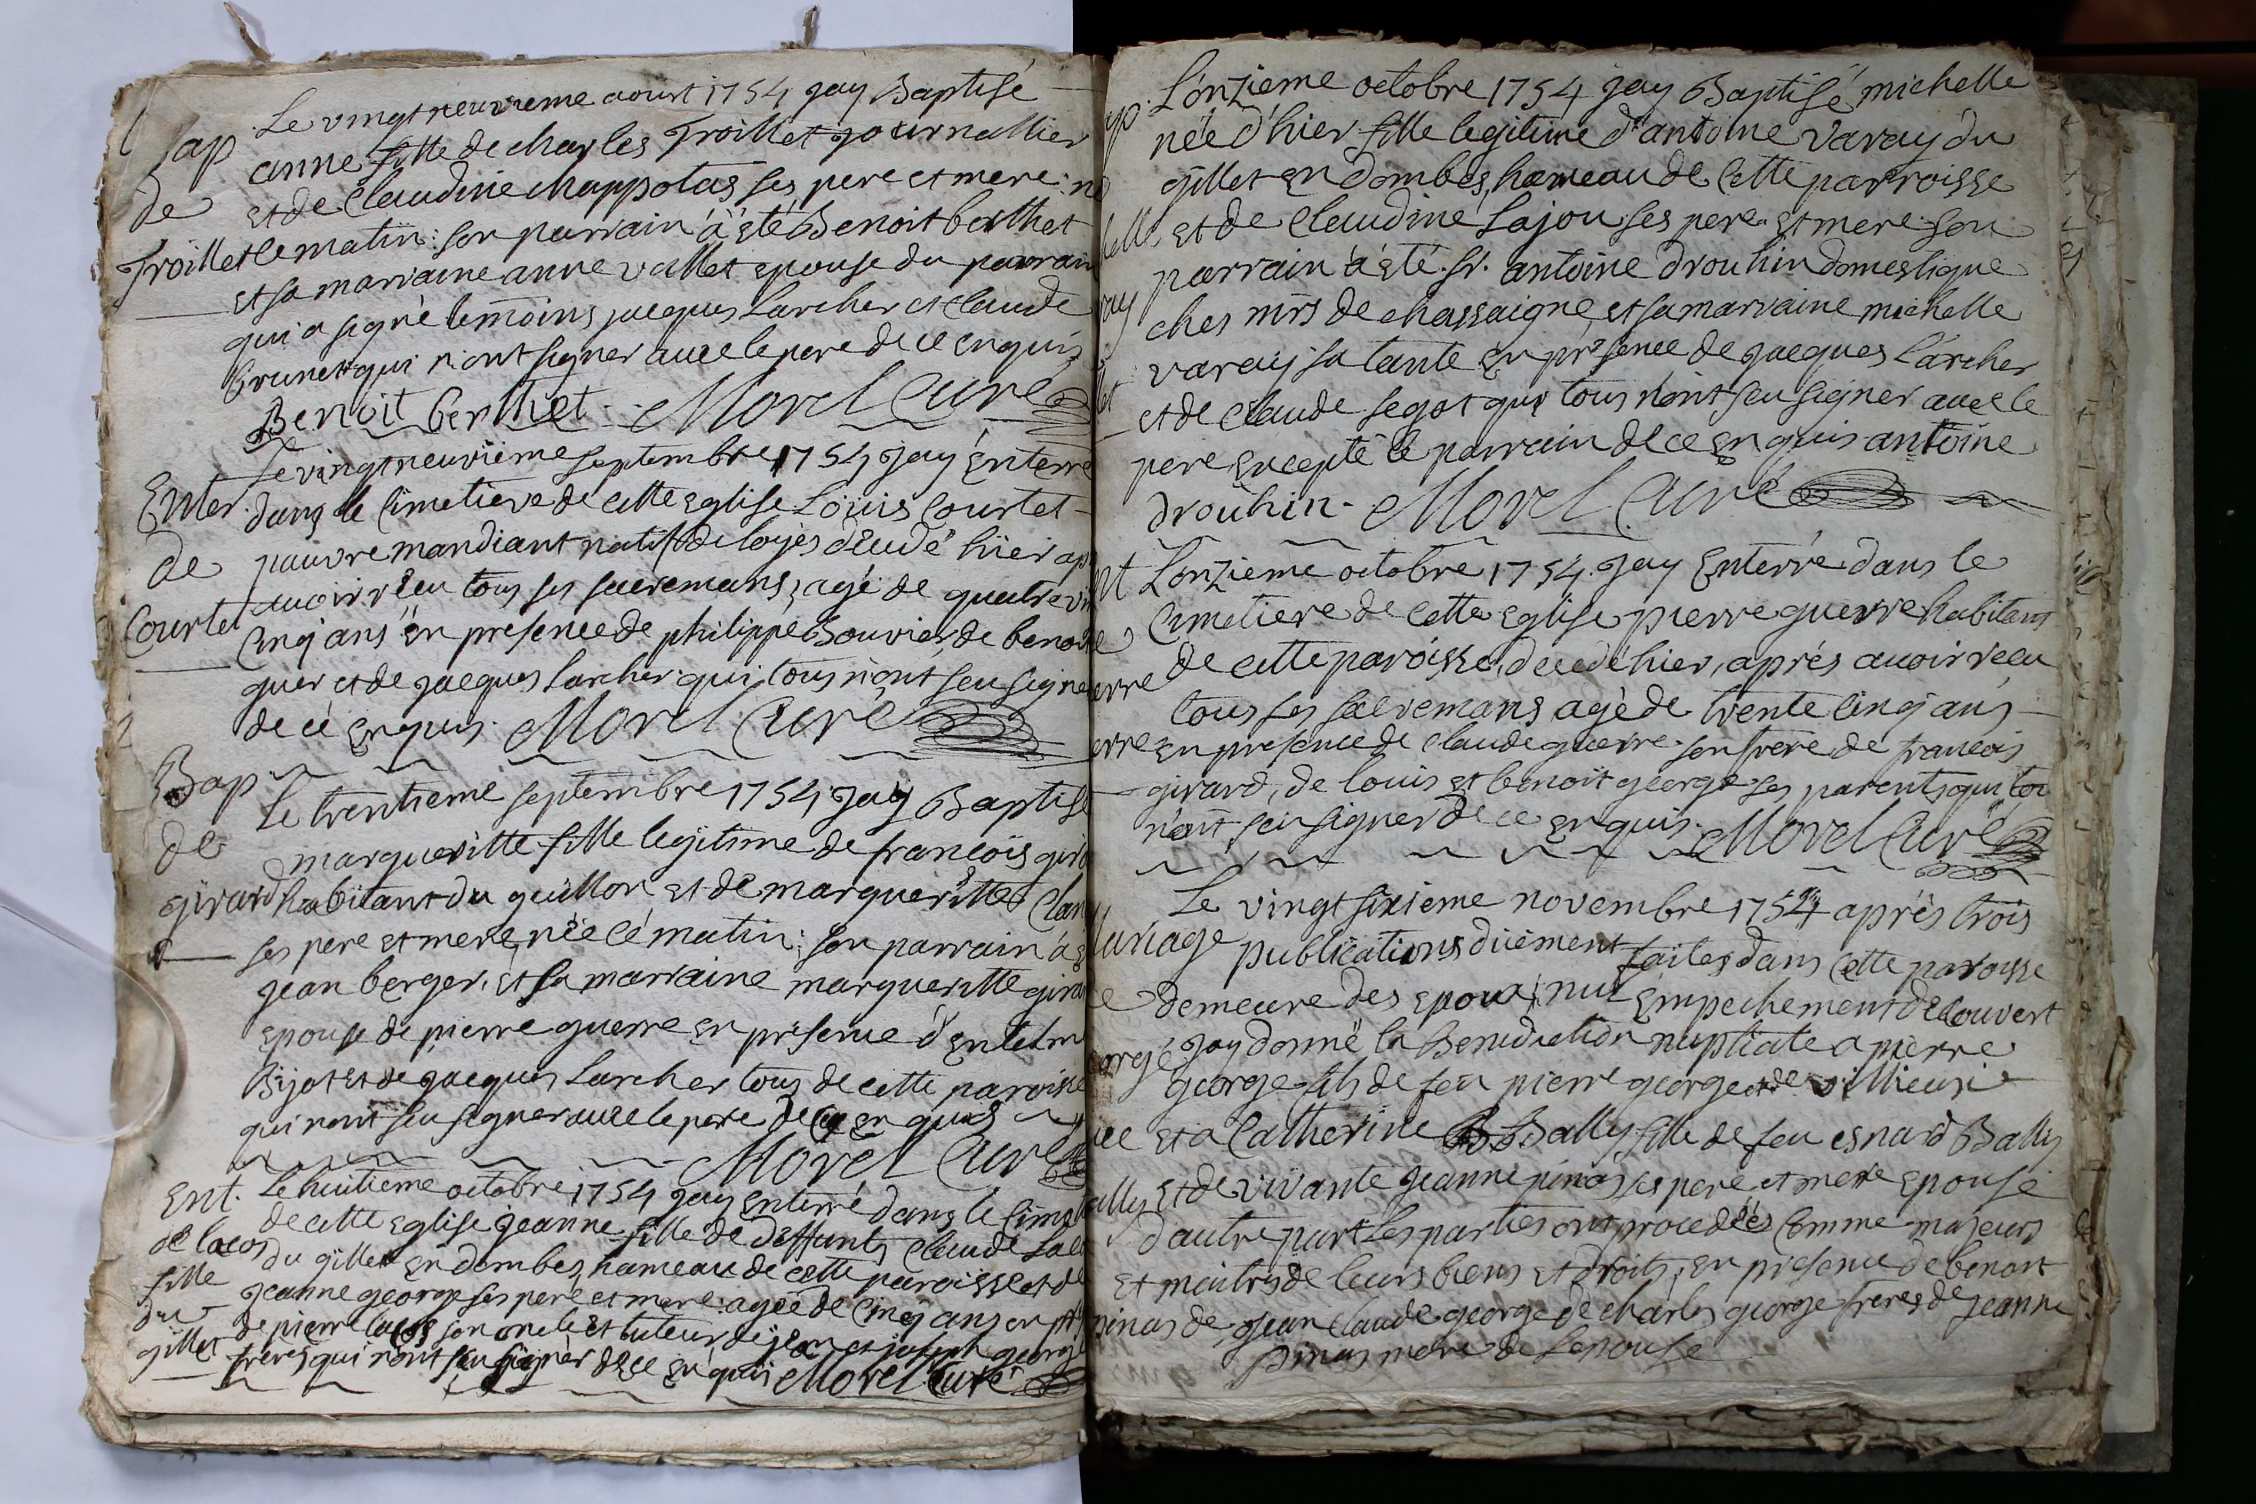 Bap
de
Froillet
Le vingt neuvieme aoust 1754 jay Baptisé
anne fille de charles Froillet journallier
et de Claudine chappotas ses pere et mere: né
le matin: son parrain á été Benoit berthet
et sa marraine anne vallet epouse du parrain
qui a signé temoins jacques Larcher et claude
brunet qui n'ont signer avec le pere de ce enquis
Benoit berthet. Morel Curé
Enter.
de
Courtet
Le vingt neuvième septembre 1754 jay Enterré
dans le Cimetiere de cette Eglise Loüis Courtet
pauvre mandiant natif de loyes décedé hier ap
avoir réeu tous ses sacremans, agé de quatre vin
Cinq ans En presence de philippe Bouvier, de benoi
guer et de jacques Larcher qui tous n'ont seu signe
de ce Enquis. Morel Curé
Bap
de
girard
Le trentieme septembre 1754 jay Baptisé
margueritte fille legitime de françois gir
habitant du guillon et de margueritte Clan
ses pere et mere, née cé matin: son parrain á é
jean berger, et sa marraine margueritte girar
epouse de pierre guerre en présence d'Entelm
Bijot et de jacques Larcher tous de cette paroisse
qui n'ont seu signer avec le pere de ce en quis
Morel Curé
Ent.
de lacos
fille
du
gillet
Le huitieme octobre 1754 jay enterré dans le Cime
de cette Eglise jeanne fille de deffunts Claude La
du gillet en dombes, hameau de cette paroisse et de
jeanne george ses pere et mere: agée de Cinq ans en
de pierre lacos son oncle et tuteur de jean et joseph george
freres qui n'ont seu signer de ce en quis Morel Curé
L'onzieme octobre 1754 jay Baptisé michelle
née d'hier fille legitime d'antoine varay du
gillet en dombes, hameau de Cette parroisse
et de Claudine Lajou ses pere et mere: son
parrain á été sr. antoine drouhin domestique
ches mrs de chassaigne, et sa marraine michelle
varay sa tante en présence de jacques Larcher
et de Claude segot qui tous n'ont seu signer avec le
pere excepté le parrain de ce enquis antoine
drouhin. Morel Curé
L'onzieme octobre 1754. jay Enterré dans le
Cimetiere de Cette Eglise pierre guerre habitans
de cette paroisse, decedé hier, aprés avoir réeu
tous ses sacremans agé de trente Cinq ans
En presence de Claude guerre son frere de francois
girard, de louis et benoit george ses parents qui tou
n'ont seu signer de ce enquis. Morel Curé
Le vingt sixieme novembre 1754 aprés trois
publications duëment faites dans Cette paroisse
demeure des epoux, nul Empechement decouvert
jay donné la Benediction nuptiale a pierre
george fils de feu pierre george et de
et a Catherine Bally, fille de feu esnard Bally
et de vivante jeanne pinas ses pere et mere epouse
d'autre part Les parties ont procedées Comme majeurs
et maitres de leurs biens et droits, en presence de benoit
pinas de jean Claude george de charles george freres de jeanne
pinas mere de Lepouse